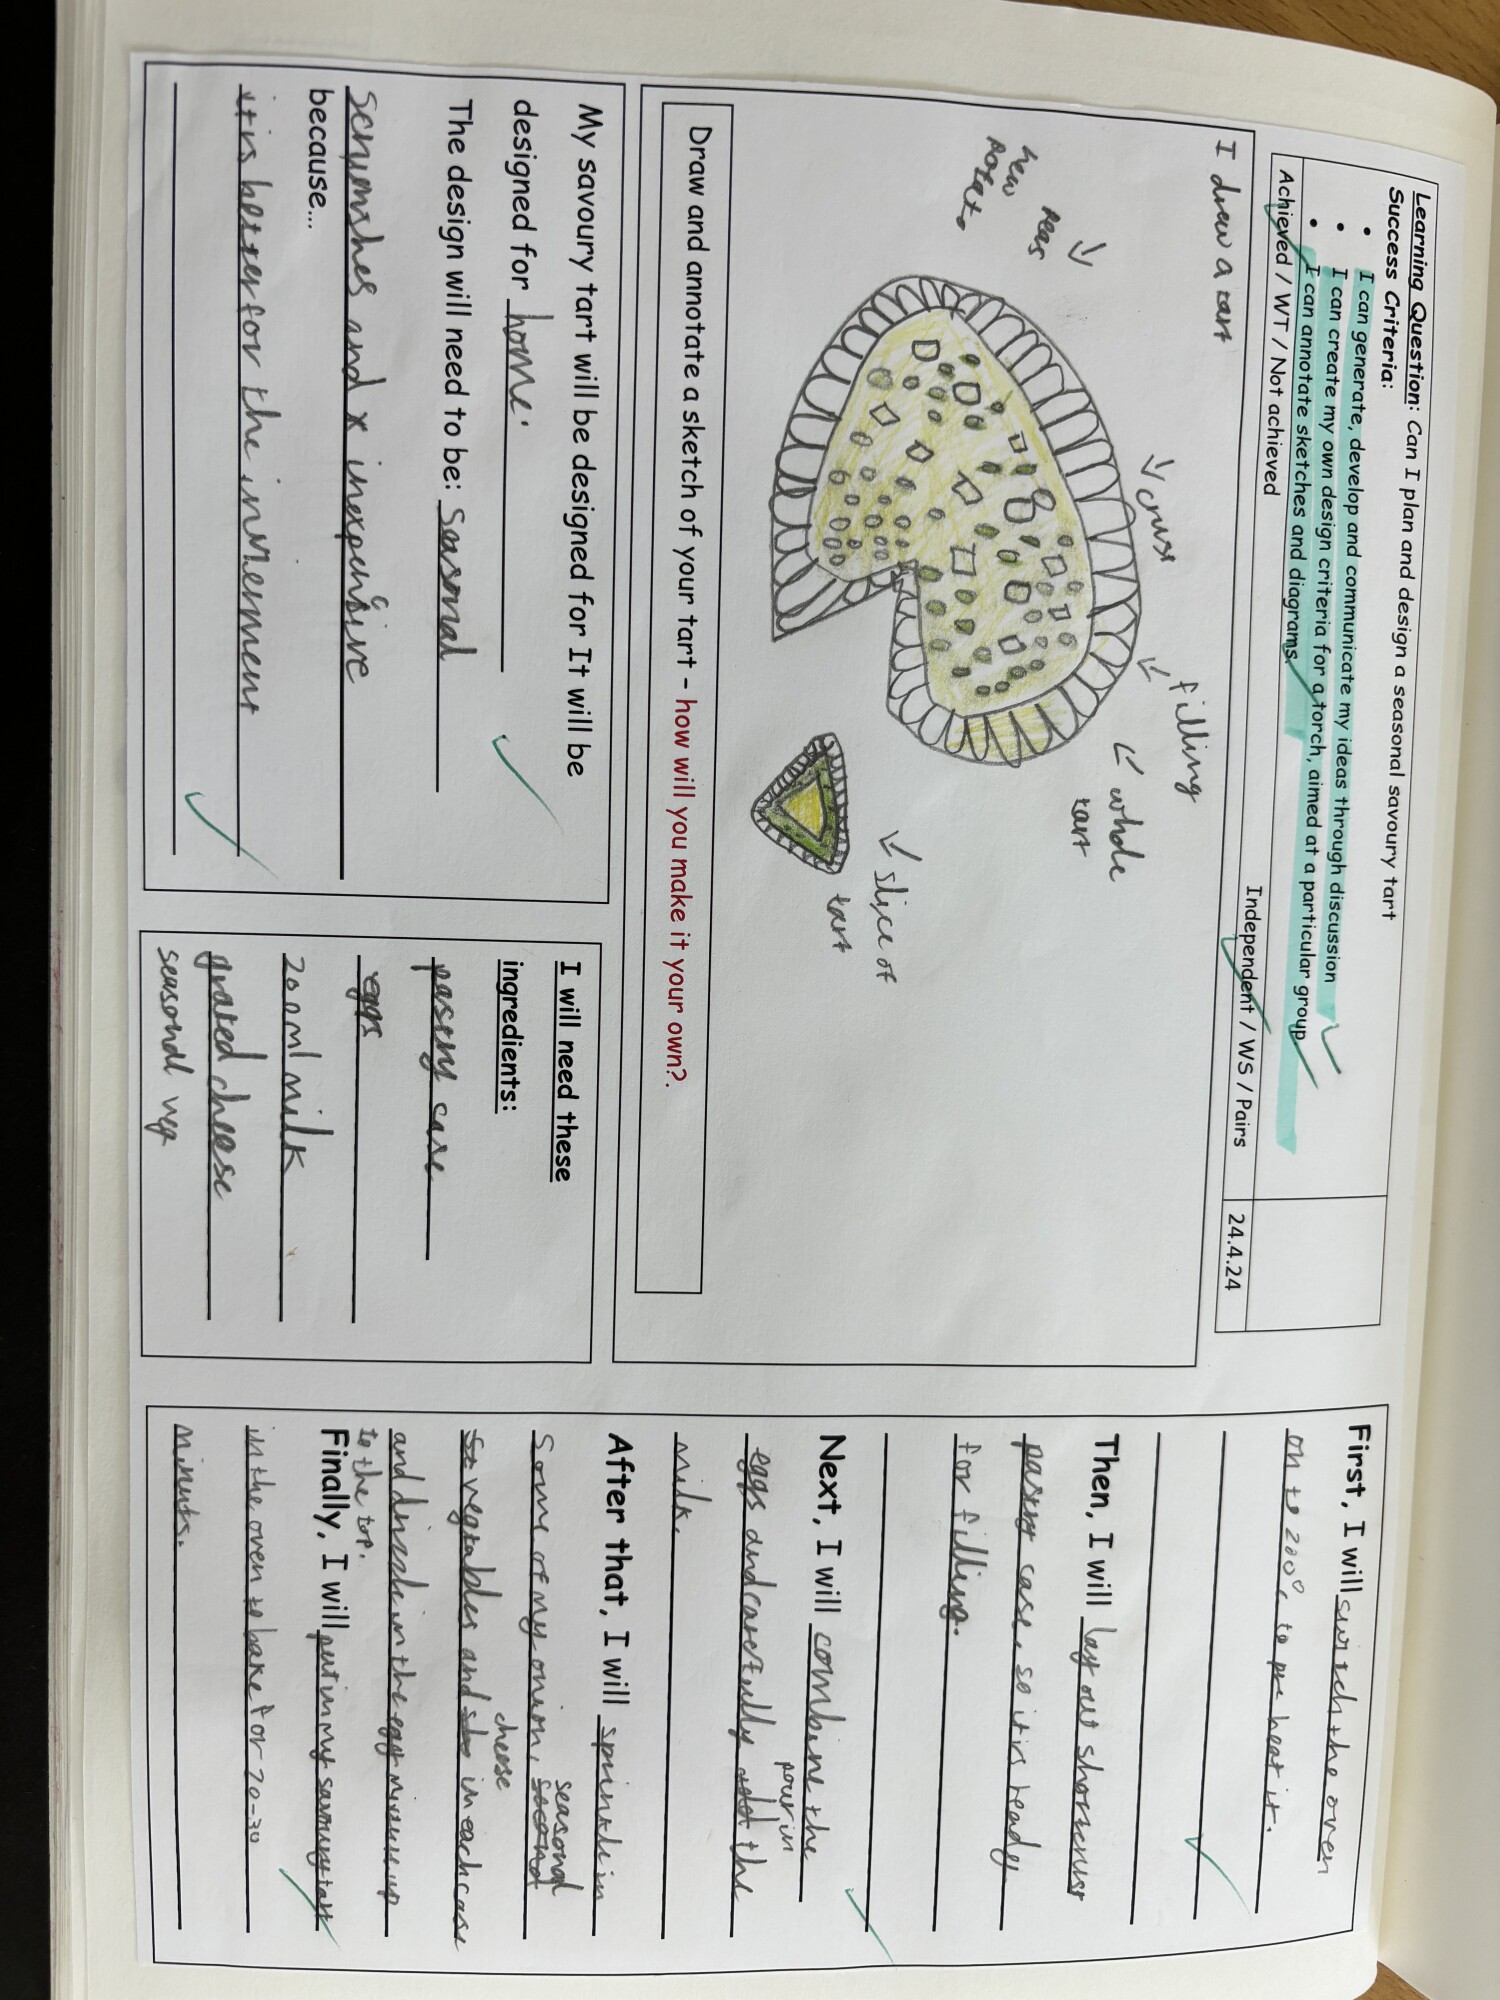 Learning Question: Can I plan and design a seasonal savoury tart
Success Criteria:
• I can generate, develop and communicate my ideas through discussion
• I can create my own design criteria for a torch, aimed at a particular group.
• I can annotate sketches and diagrams.
Achieved / WT / Not achieved
Independent / WS / Pairs
24.4.24
I draw a tart
new
potato
peas
crust
filling
whole
tart
slice of
tart
Draw and annotate a sketch of your tart – how will you make it your own?.
My savoury tart will be designed for It will be
designed for home.
The design will need to be: seasonal
scrumshes and x inexpensive
because...
it is better for the
I will need these
ingredients:
pastry case
eggs
200ml milk
grated cheese
seasonal veg
First, I will switch the oven
on to 200°c to pre heat it.
Then, I will lay out shortcrust
pastry case, so it is ready
for filling.
Next, I will combine the
pour in
eggs and carefully the
milk.
After that, I will sprinkle in
seasonal
some of my onion,
cheese
vegtables and in each case
and drizzle in the egg up
to the top.
Finally, I will put in my savoury tart
in the oven to bake for 20-30
minuts.